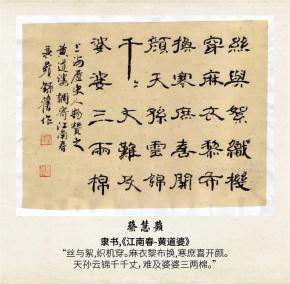 絲與絮織機
穿麻衣黎布
換寒庶喜開
顏天孫雲錦
千〻丈難及
婆婆三兩棉
上海歷史人物贊之
黃道婆調寄江南春
舊作
蔡慧蘋
隶书,《江南春-黄道婆》
“丝与絮,织机穿。麻衣黎布换,寒庶喜开颜。
天孙云锦千千丈,难及婆婆三两棉。”